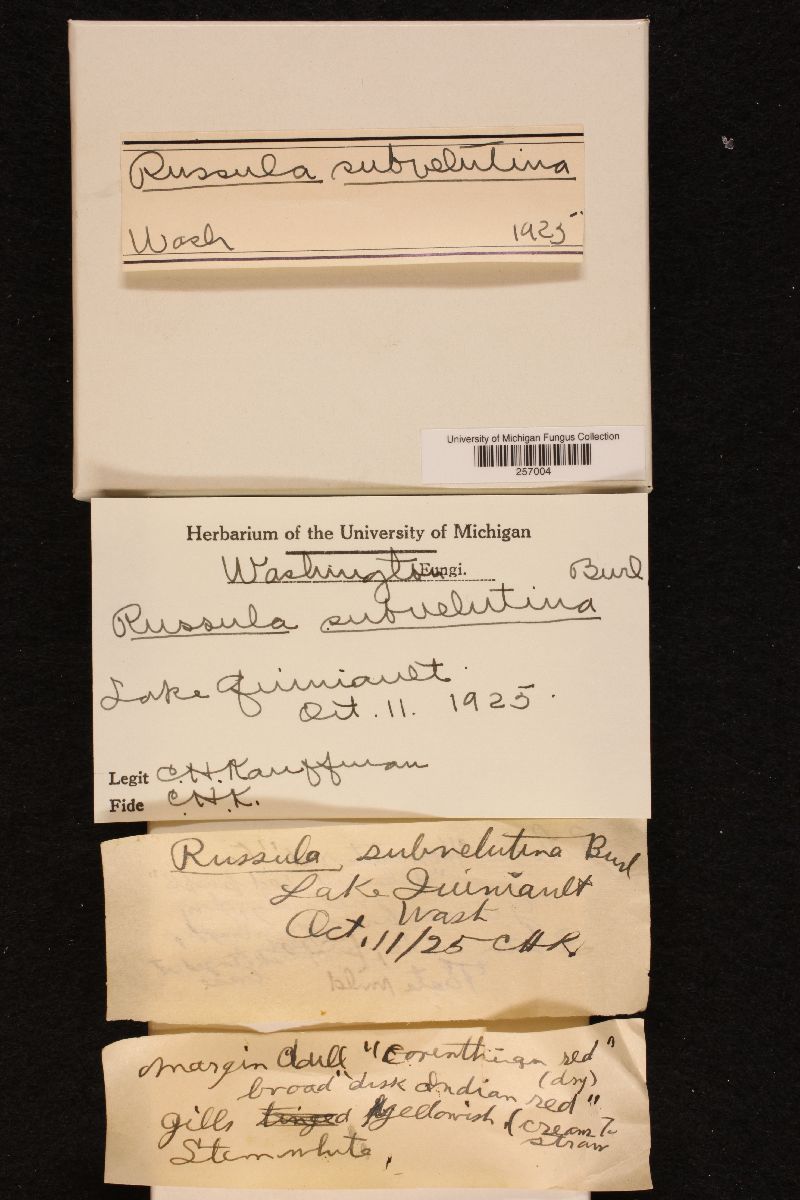 Russula subvelutina
Wash 1925
University of Michigan Fungus Collection
257004
Herbarium of the University of Michigan
Washington Fungi.
Burl
Russula subvelutina
Lake Quiniault
Oct. 11. 1925.
Legit C.H. Kauffman
Fide C.H.K.
Russula subvelutina Burl
Lake Quiniault
Wash
Oct. 11/25 CHK.
margin dull "Corinthian red"
(dry)
broad disk "Indian red"
gills tinged yellowish (cream to
straw
Stem white,